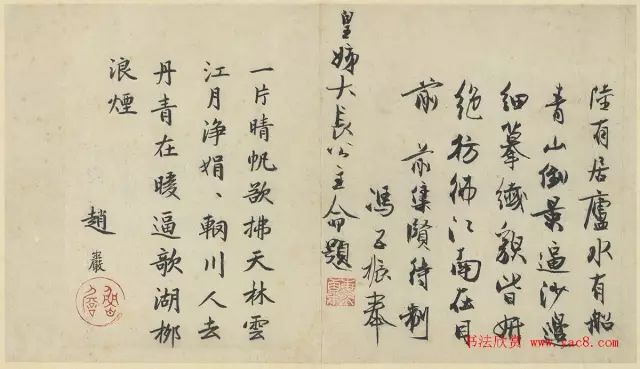 陸有居廬水有船
青山倒景逼沙邊
細摹纖貌皆妍
絕彷彿江南在目
前 前集賢待制
馮子振奉
皇姊大長公主命題
一片晴帆欲拂天林雲
江月淨娟、輞川人去
丹青在暖逼欹湖柳
浪煙
趙巖
书法欣赏 www.yac8.com